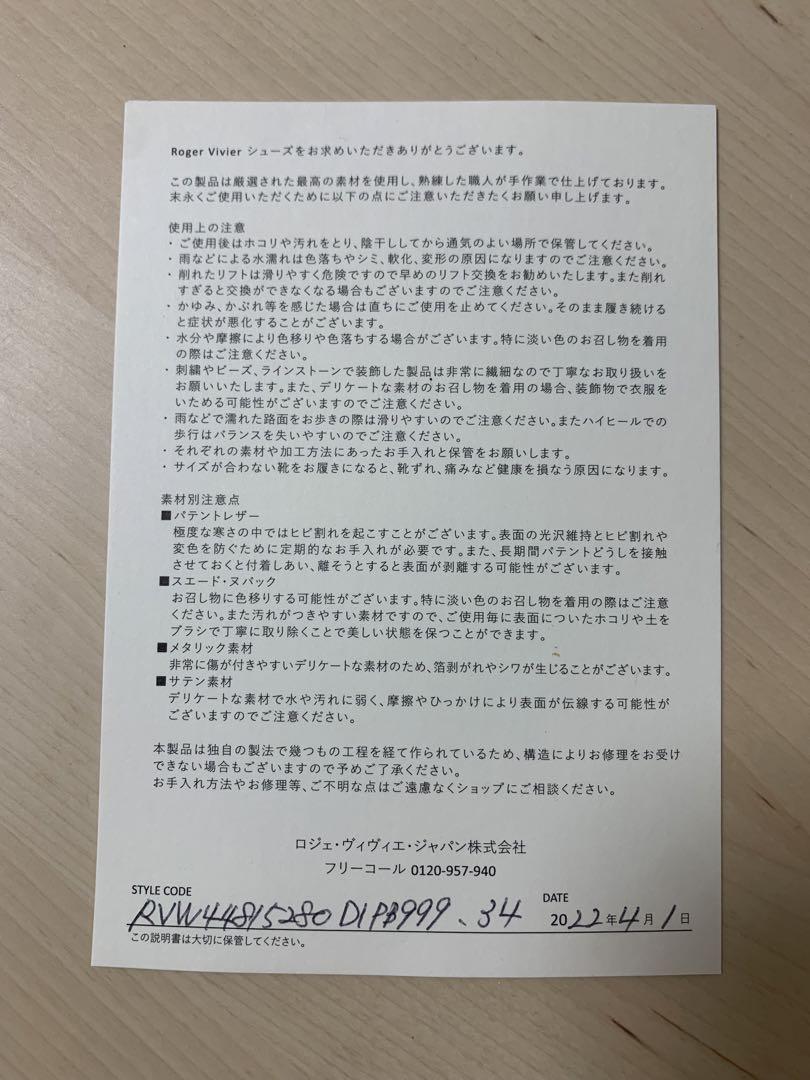 Roger Vivier シューズをお求めいただきありがとうございます。
この製品は厳選された最高の素材を使用し、熟練した職人が手作業で仕上げております。
末永くご使用いただくために以下の点にご注意いただきたくお願い申し上げます。
使用上の注意
・ご使用後はホコリや汚れをとり、陰干ししてから通気のよい場所で保管してください。
・雨などによる水濡れは色落ちやシミ、軟化、変形の原因になりますのでご注意ください。
・削れたリフトは滑りやすく危険ですので早めのリフト交換をお勧めいたします。また削れ
すぎると交換ができなくなる場合もございますのでご注意ください。
・かゆみ、かぶれ等を感じた場合は直ちにご使用を止めてください。そのまま履き続ける
と症状が悪化することがございます。
・水分や摩擦により色移りや色落ちする場合がございます。特に淡い色のお召し物を着用
の際はご注意ください。
・刺繍やビーズ、ラインストーンで装飾した製品は非常に繊細なので丁寧なお取り扱いを
お願いいたします。また、デリケートな素材のお召し物を着用の場合、装飾物で衣服を
いためる可能性がございますのでご注意ください。
・雨などで濡れた路面をお歩きの際は滑りやすいのでご注意ください。またハイヒールでの
歩行はバランスを失いやすいのでご注意ください。
・それぞれの素材や加工方法にあったお手入れと保管をお願いします。
・サイズが合わない靴をお履きになると、靴ずれ、痛みなど健康を損なう原因になります。
素材別注意点
■パテントレザー
極度な寒さの中ではヒビ割れを起こすことがございます。表面の光沢維持とヒビ割れや
変色を防ぐために定期的なお手入れが必要です。また、長期間パテントどうしを接触
させておくと付着しあい、離そうとすると表面が剥離する可能性がございます。
■スエード・ヌバック
お召し物に色移りする可能性がございます。特に淡い色のお召し物を着用の際はご注意
ください。また汚れがつきやすい素材ですので、ご使用毎に表面についたホコリや土を
ブラシで丁寧に取り除くことで美しい状態を保つことができます。
■メタリック素材
非常に傷が付きやすいデリケートな素材のため、箔剥がれやシワが生じることがございます。
■サテン素材
デリケートな素材で水や汚れに弱く、摩擦やひっかけにより表面が伝線する可能性が
ございますのでご注意ください。
本製品は独自の製法で幾つもの工程を経て作られているため、構造によりお修理をお受け
できない場合もございますので予めご了承ください。
お手入れ方法やお修理等、ご不明な点はご遠慮なくショップにご相談ください。
ロジェ・ヴィヴィエ・ジャパン株式会社
フリーコール 0120-957-940
STYLE CODE DATE
RVW44815280D1PB999、34 2022年4月1日
この説明書は大切に保管してください。